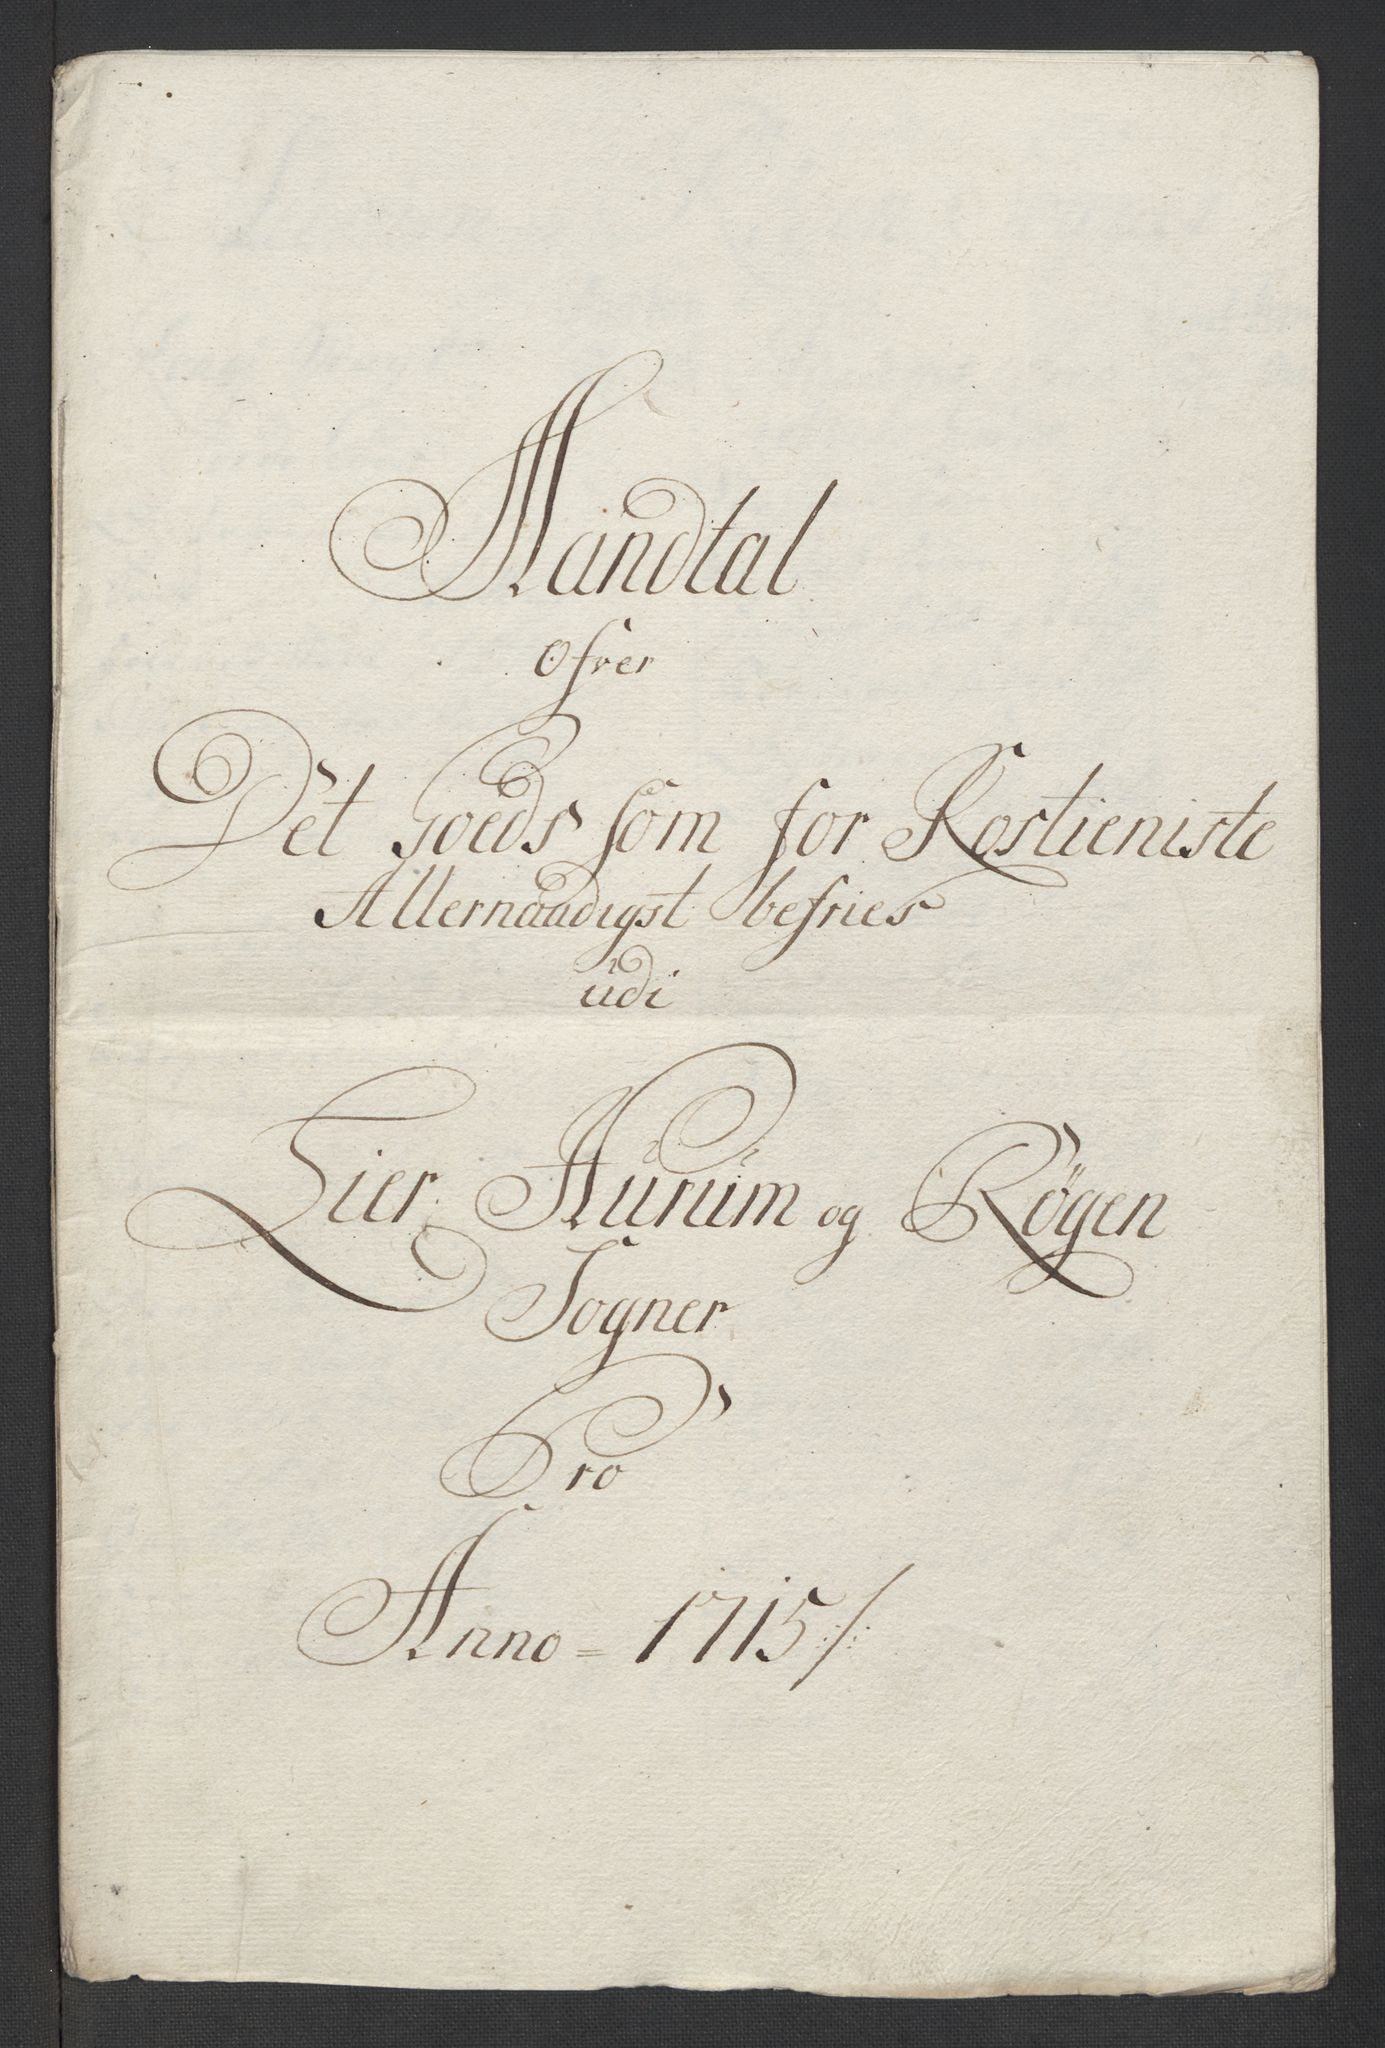 Mandtal
Ofver
Det Goeds som for Rostieniste
Allernaadigst befries
udi
Lier, Hurum og Røgen
Sogner
Pro
Anno = 1715 /